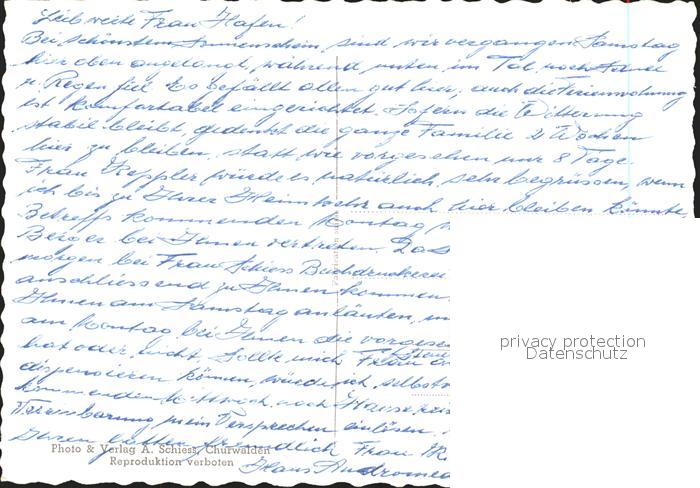 Lieb werte Frau Hafen!
Bei schönstem Sonnenschein, sind wir vergangen Samstag
hier oben angelangt, während unten im Tal noch
u. Regen fiel. Es gefällt allen gut hier, auch die Ferienwohnung
ist komfortabel eingerichtet. Sofern die Witterung
stabil bleibt, gedenkt die ganze Familie 2 Wochen
hier zu bleiben, statt wie vorgesehen nur 8 Tage.
Frau Keppler würde es natürlich sehr begrüssen, wenn
ich bis zu Ihrer Heimkehr auch hier bleiben könnte,
Betreffs kommenden Montag
Berger bei Ihnen vertreten. Das
morgen bei Frau Schiess Buchdruckerei
anschliessend zu Ihnen kommen
Ihnen am Samstag anläuten,
am Montag bei Ihnen die vorgese
hat oder nicht. Sollte mich Frau
dispensieren können, würde ich selbst
kommenden Mittwoch nach Hause
Vereinbarung, mein Versprechen einlösen.
Ihren freundlich Frau
Klaus
Photo & Verlag A. Schiess, Churwalden
Reproduktion verboten
privacy protection
Datenschutz